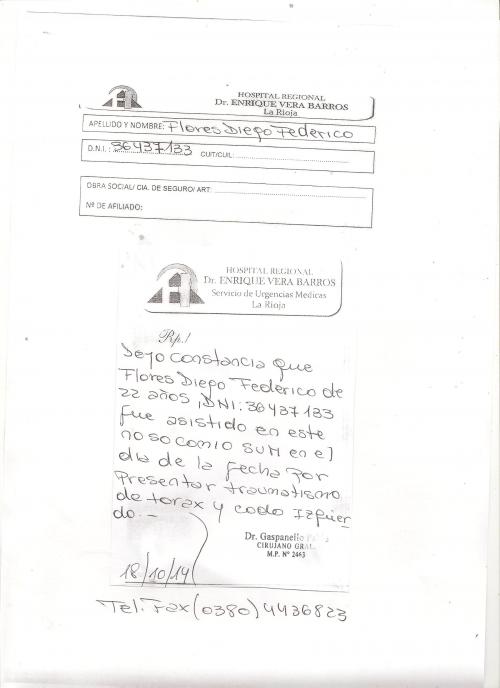 HOSPITAL REGIONAL
Dr. ENRIQUE VERA BARROS
La Rioja
APELLIDO Y NOMBRE: Flores Diego Federico
D.N.I.: 36437133 CUIT/CUIL:
OBRA SOCIAL/ CIA. DE SEGURO/ ART:
Nº DE AFILIADO:
HOSPITAL REGIONAL
Dr. ENRIQUE VERA BARROS
Servicio de Urgencias Medicas
La Rioja
Rp./
Dejo constancia que
Flores Diego Federico de
22 años, DNI: 36437133
fue asistido en este
nosocomio SUM en el
dia de la fecha por
presentar traumatismo
de torax y codo Izquier
do.-
Dr. Gaspanello
CIRUJANO GRAL.
M.P. Nº 2463
18/10/14
Tel. Fax (0380) 4436823